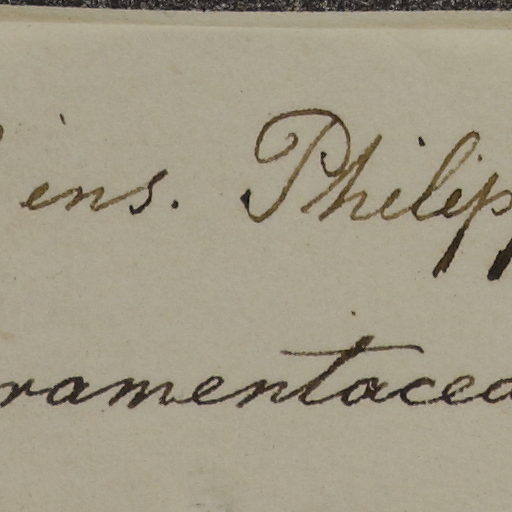 ins. Philipp
ramentacea